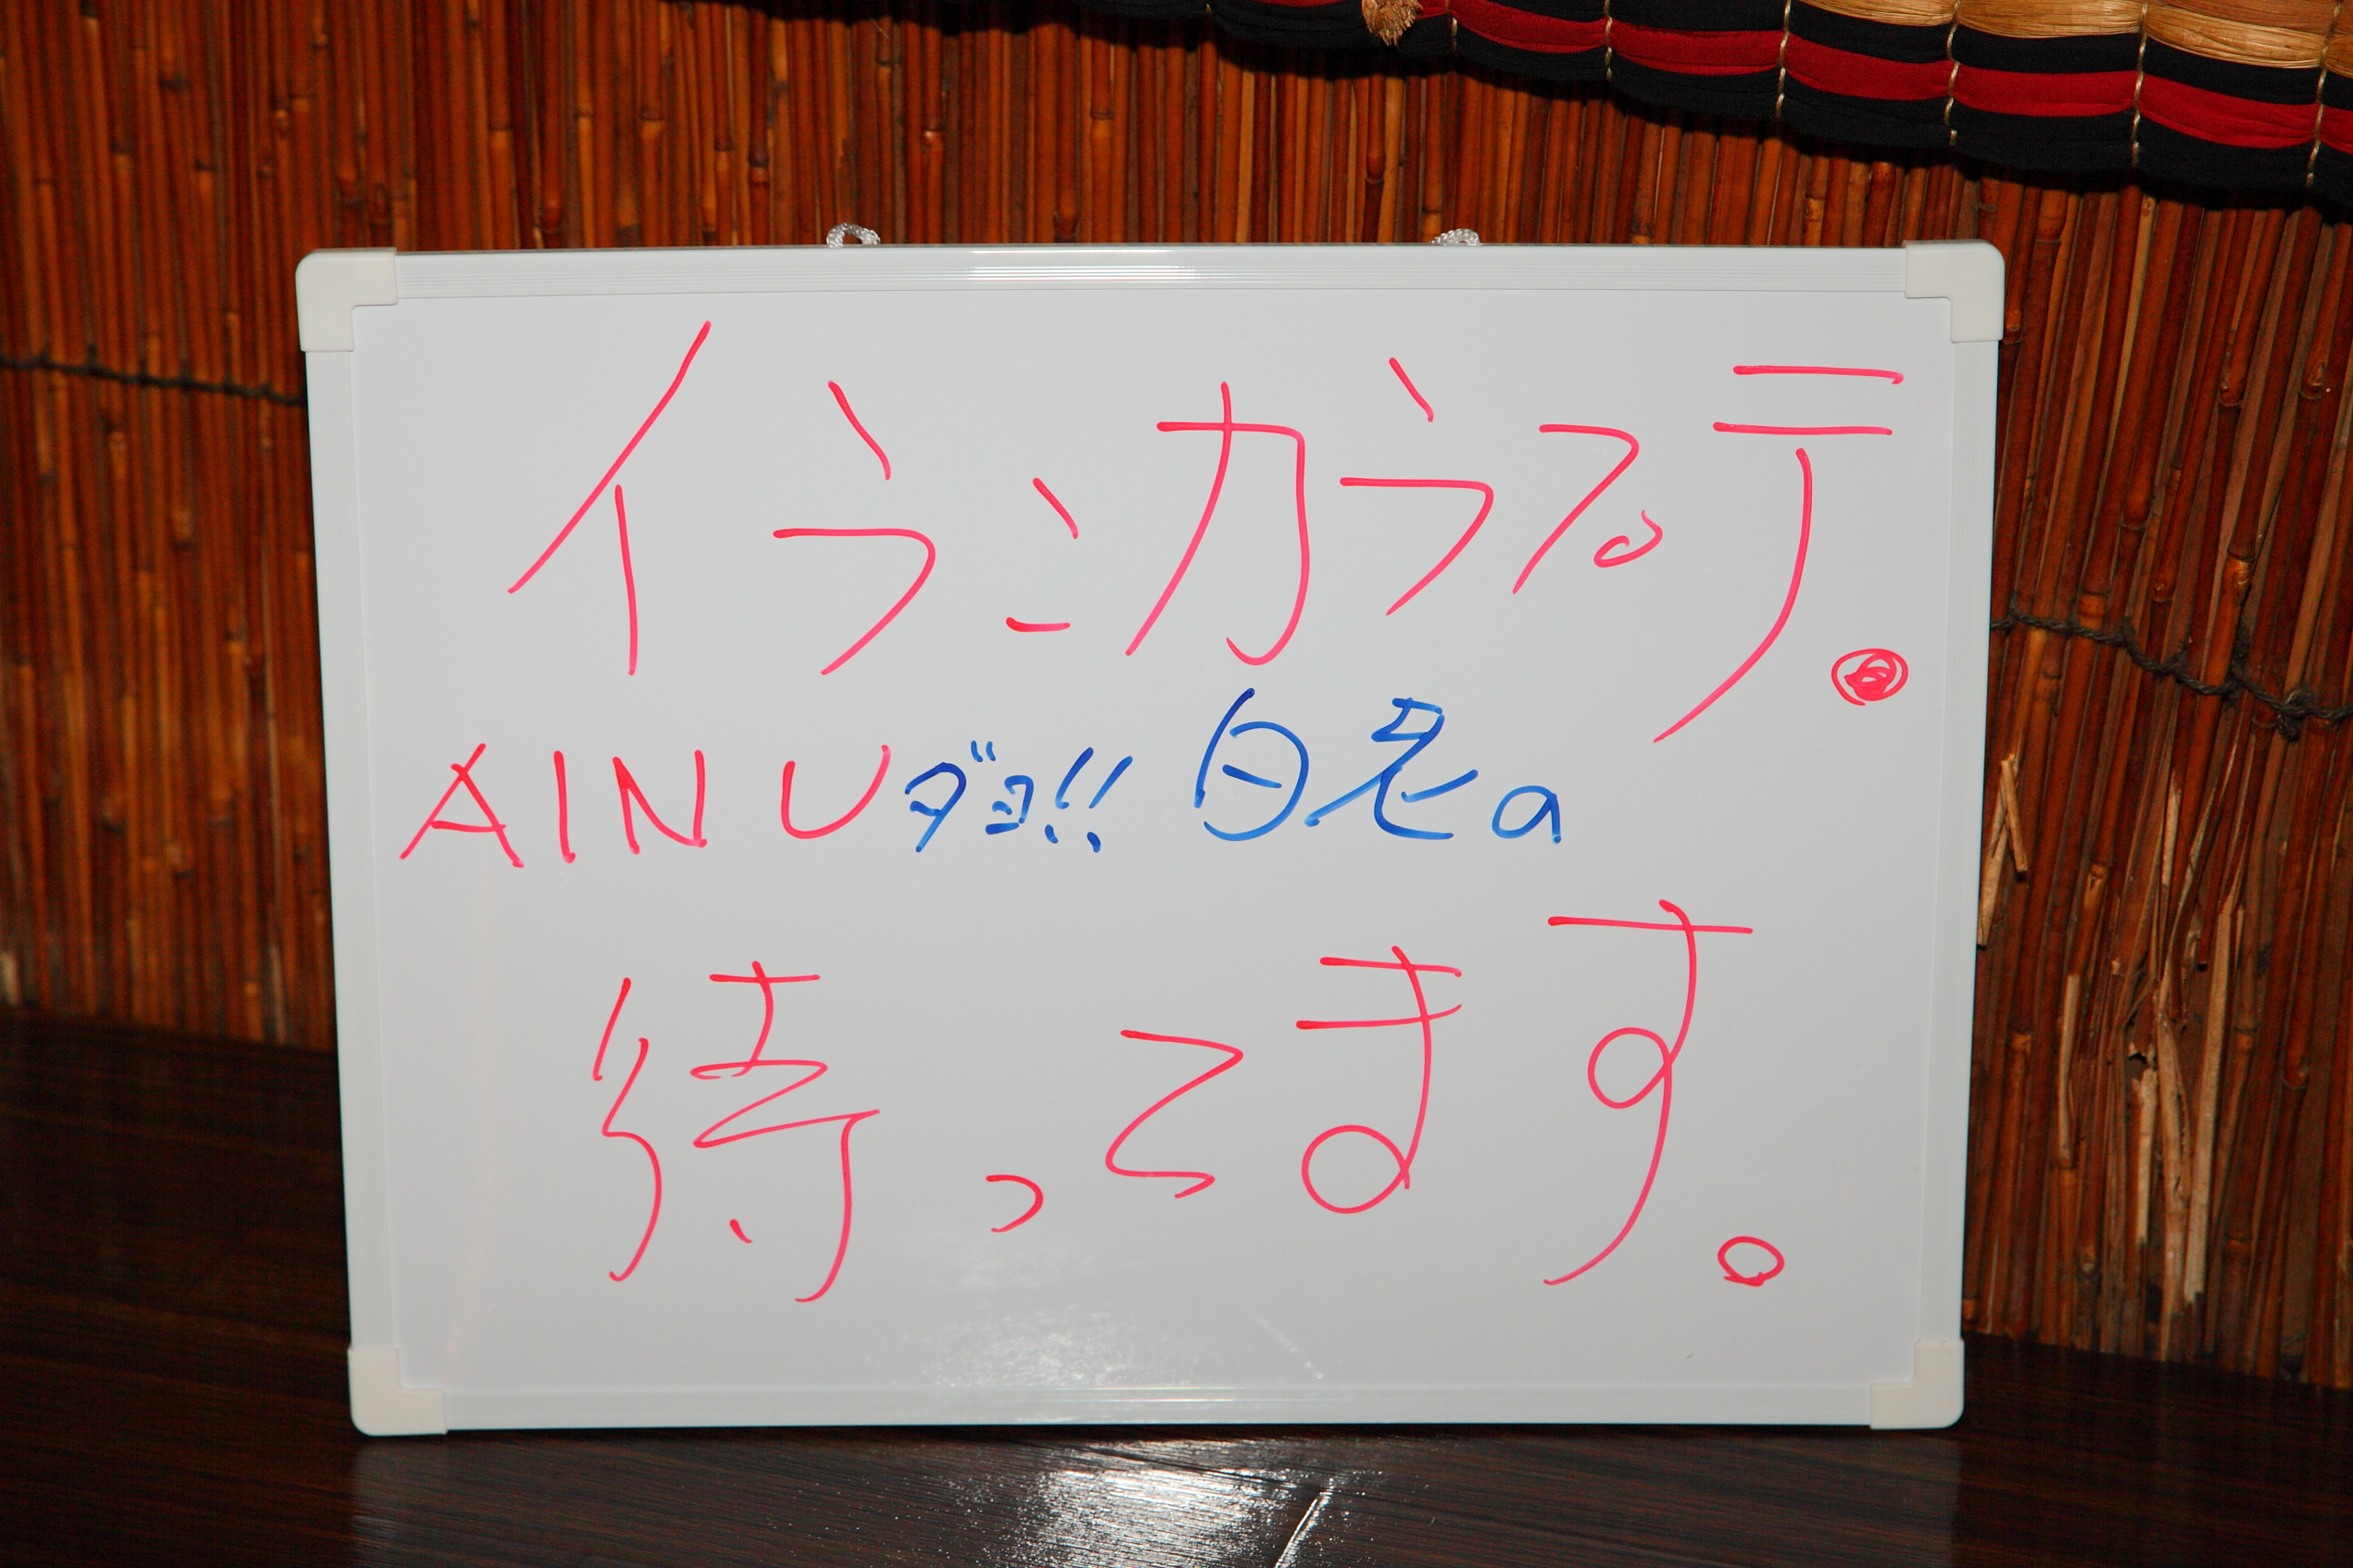 イランカラプテ。
AINUダヨ!! 白老a
待ってます。